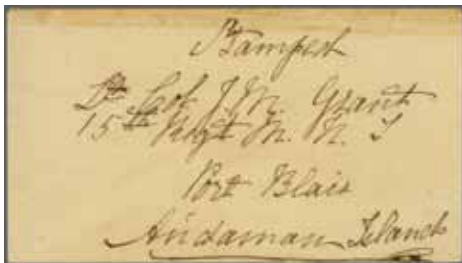 Stamped
Lt Col J. M. Grant
15th Regt M. N. I
Port Blair
Andaman Islands